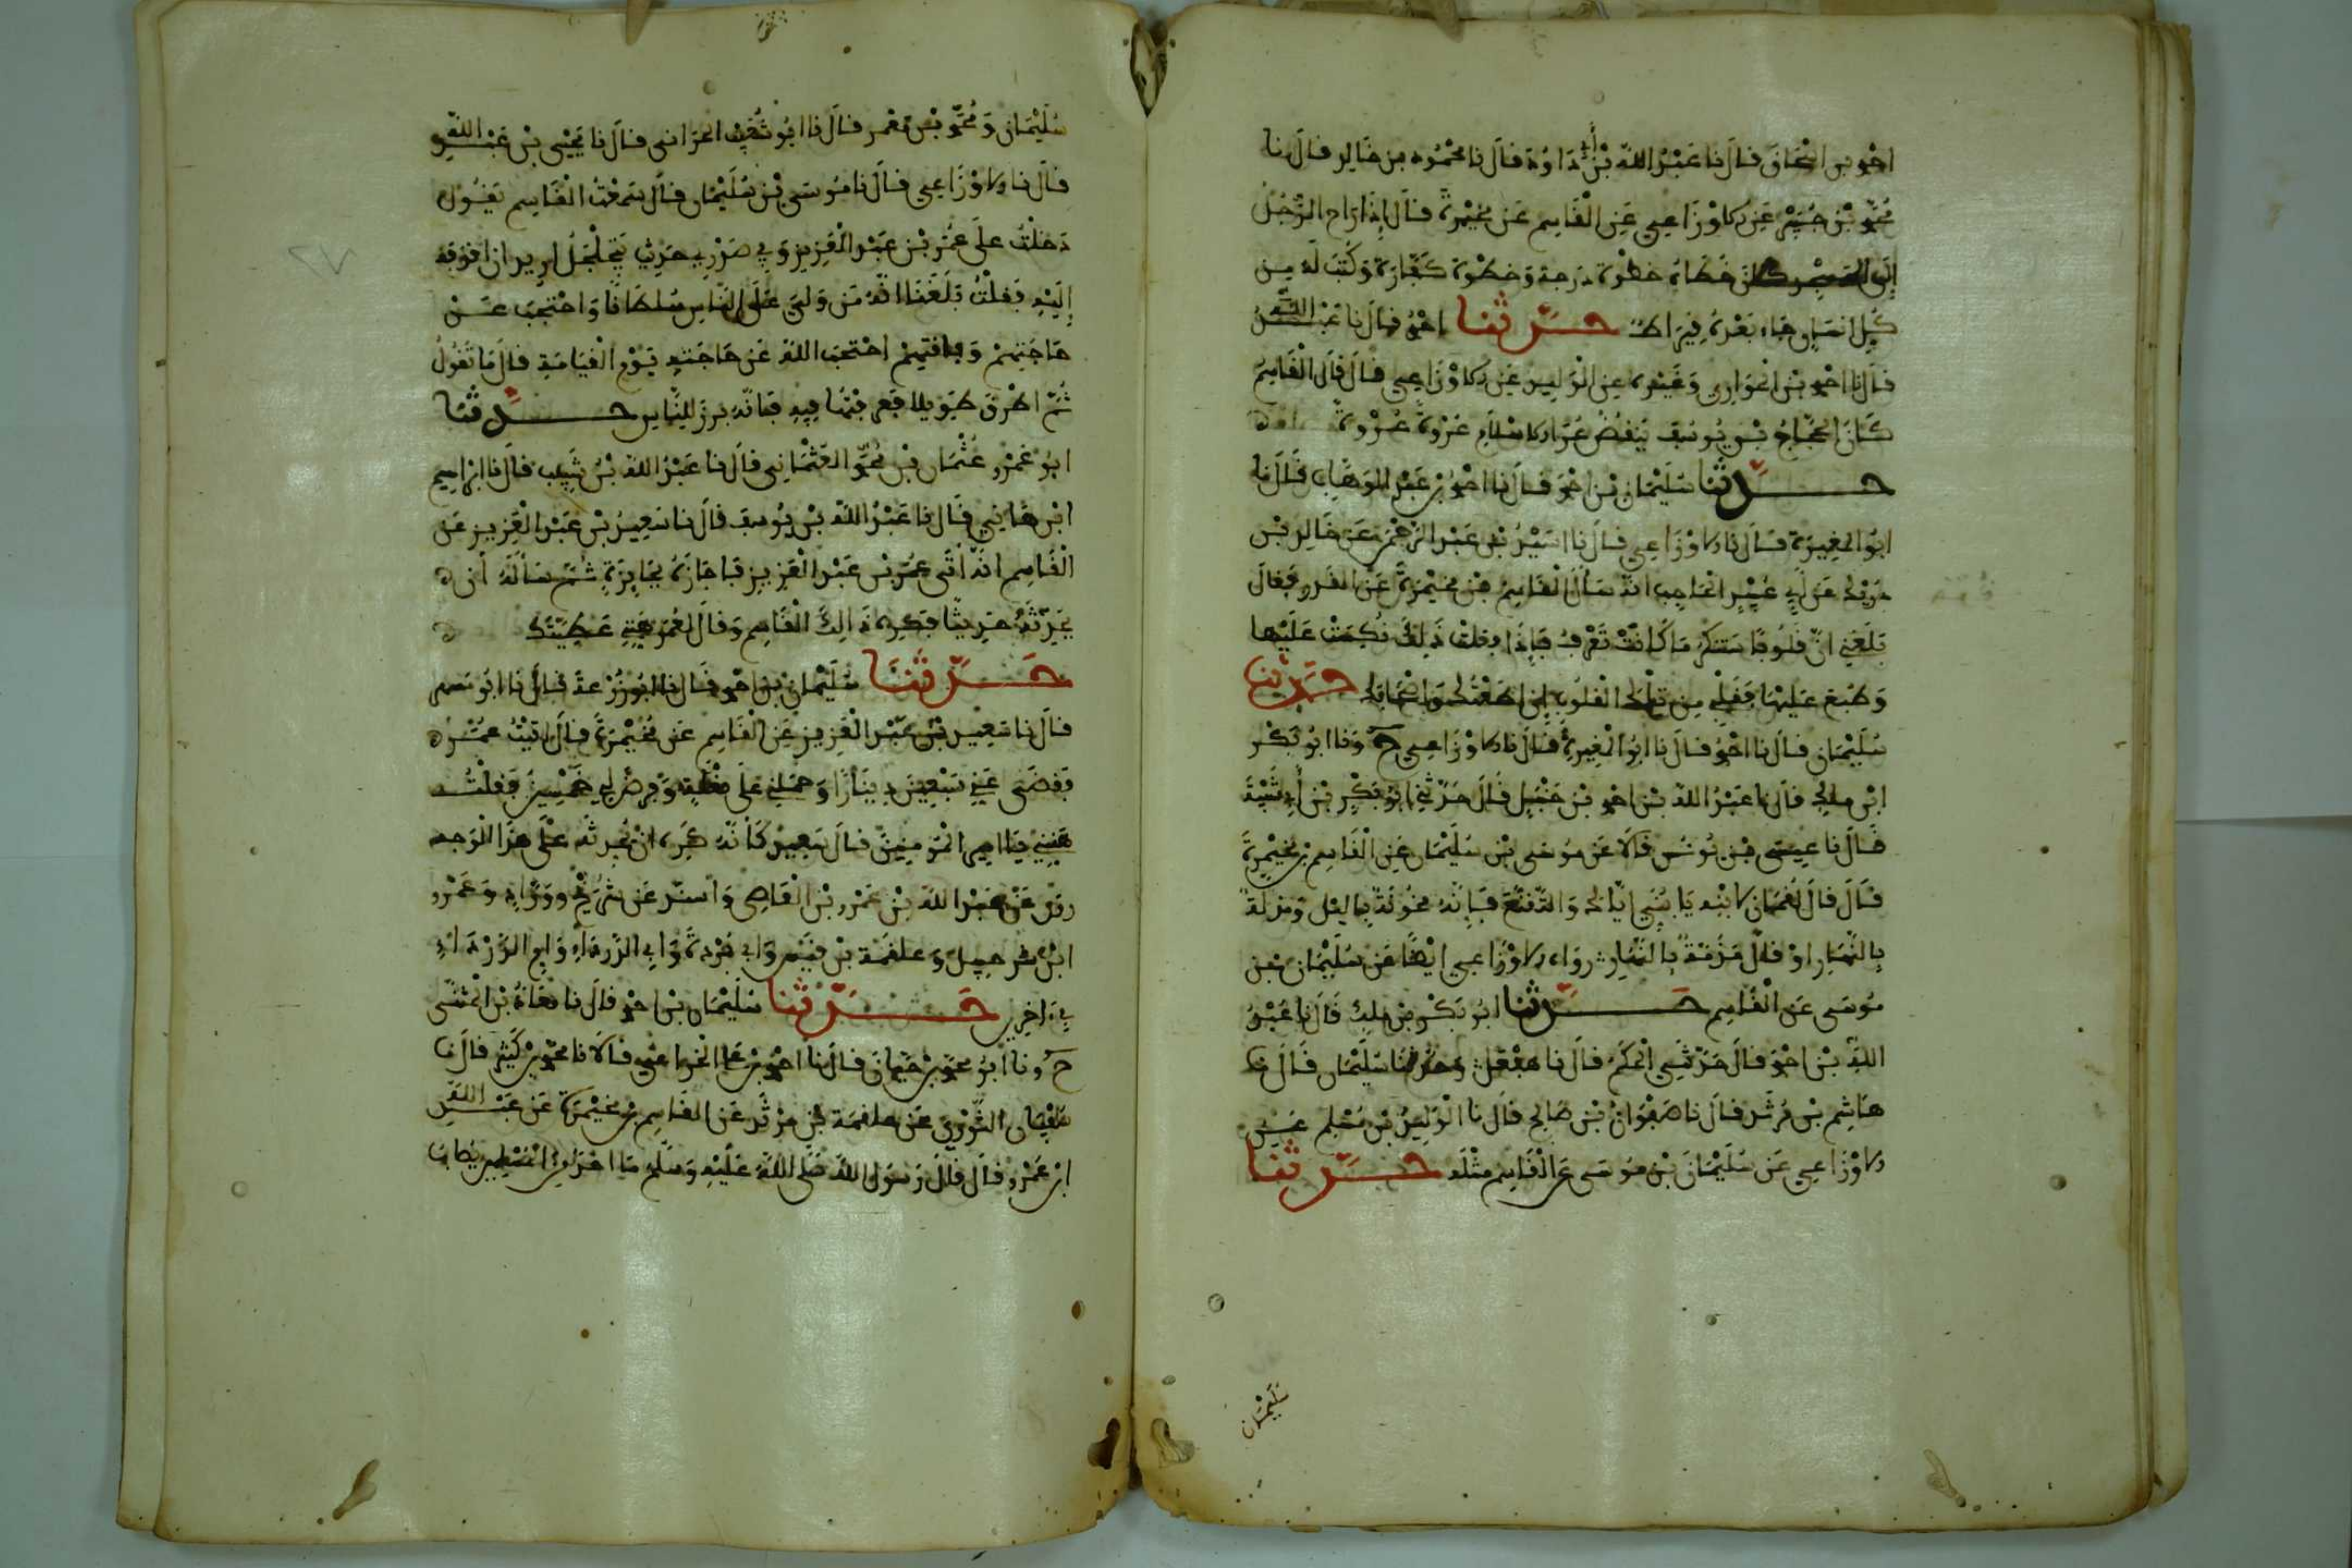 احمد بن اسحاق قال نا عبد الله بن أبي داود قال نا محمود بن خالد قال نا
عن الاوزاعي عن القاسم بن مخيمرة قال إذا راح الرجل
إلى المسجد كان خطاه خطوة درجة وخطوة كفارة وكتب له من
كل انسان جاء بعده قيراط حدثنا احمد قال نا عبد الله
قال نا احمد بن الحواري وغيره عن الوليد عن الاوزاعي قال قال القاسم
كان الحجاج بن يوسف ينقض عرى الاسلام عروة عروة
حدثنا سليمان بن احمد قال نا احمد بن عبد الوهاب قال نا
ابو المغيرة قال نا الاوزاعي قال نا اسيد بن عبد الرحمن عن خالد بن
دريك عن أبي عبيد الحاجب انه سأل القاسم بن مخيمرة عن القدر فقال
بلغني ان قلوبا ستنكر ما كانت تعرف فإذا فعلت ذلك نكست
وطبع عليها فقلبي من تلك القلوب إن اطعتك واصحابك حدثنا
سليمان قال نا احمد قال نا ابو المغيرة قال نا الاوزاعي ح ونا ابو بكر
ابن مالك قال نا عبد الله بن احمد بن حنبل قال حدثني ابو بكر بن أبي شيبة
قال نا عيسى بن يونس قالا عن موسى بن سليمان عن القاسم بن مخيمرة
قال قال لقمان لابنه يا بني اياك والتقنع فإنه مخوفة بالليل ومذلة
بالنهار او قال مذمة بالنهار رواه الاوزاعي ايضا عن سليمان بن
موسى عن القاسم حدثنا ابو بكر بن ملك قال نا عبد
الله بن احمد قال حدثني الحكم قال نا هقل وحدثنا سليمان قال نا
هاشم بن مرثد قال نا صفوان بن صالح قال نا الوليد بن مسلم عن
الاوزاعي عن سليمان بن موسى عن القاسم مثله حدثنا
سليمان
سليمان ومحمد بن معمر قال نا ابو شعيب الحراني قال نا يحيى بن عبد الله
قال نا الاوزاعي قال نا موسى بن سليمان قال سمعت القاسم يقول
دخلت على عمر بن عبد العزيز وفي صدري حديث يتجلجل اريد ان اقذفه
إليه فقلت بلغنا انه من ولي على الناس سلطانا واحتجب عن
حاجتهم وفاقتهم احتجب الله عن حاجته يوم القيامة قال ما تقول
ثم اطرق طويلا فعرفتها فيه فانه برز للناس حدثنا
ابو عمرو عثمان بن محمد العثماني قال نا عبد الله بن شبيب قال نا ابراهيم
ابن هاني قال نا عبد الله بن يوسف قال نا سعيد بن عبد العزيز عن
القاسم انه أتى عمر بن عبد العزيز فاجازه بجايزة ثم سأله أن
يحدثه حديثا فكره ذالك القاسم وقال لعمر هنني عطيتك
حدثنا سليمان بن احمد قال نا ابو زرعة قال نا ابو مسهر
قال نا سعيد بن عبد العزيز عن القاسم عن مخيمرة قال اتيت عمر
فقضى عني سبعين دينارا وحملني على بغلة وفرض لي خمسين فقلت
هنني يا امير المومنين قال سعيد كأنه كره ان يحدثه على هذا الوجه
روى عن عبد الله بن عمرو بن العاصي وأسند عن شريح ووراد وعمرو
ابن شرحبيل وعلقمة بن قيس وأبي بردة وأبي الدرداء وام الدرداء
في ءاخرين حدثنا سليمان بن احمد قال نا معاذ بن المثنى
ح ونا أبو محمد بن حيان قال نا احمد بن علي الخزاعي قالا نا محمد بن كثير قال نا
سفيان الثوري عن علقمة بن مرثد عن القاسم بن مخيمرة عن عبد الله
ابن عمرو قال قال رسول الله صلى الله عليه وسلم ما احد من المسلمين يصاب